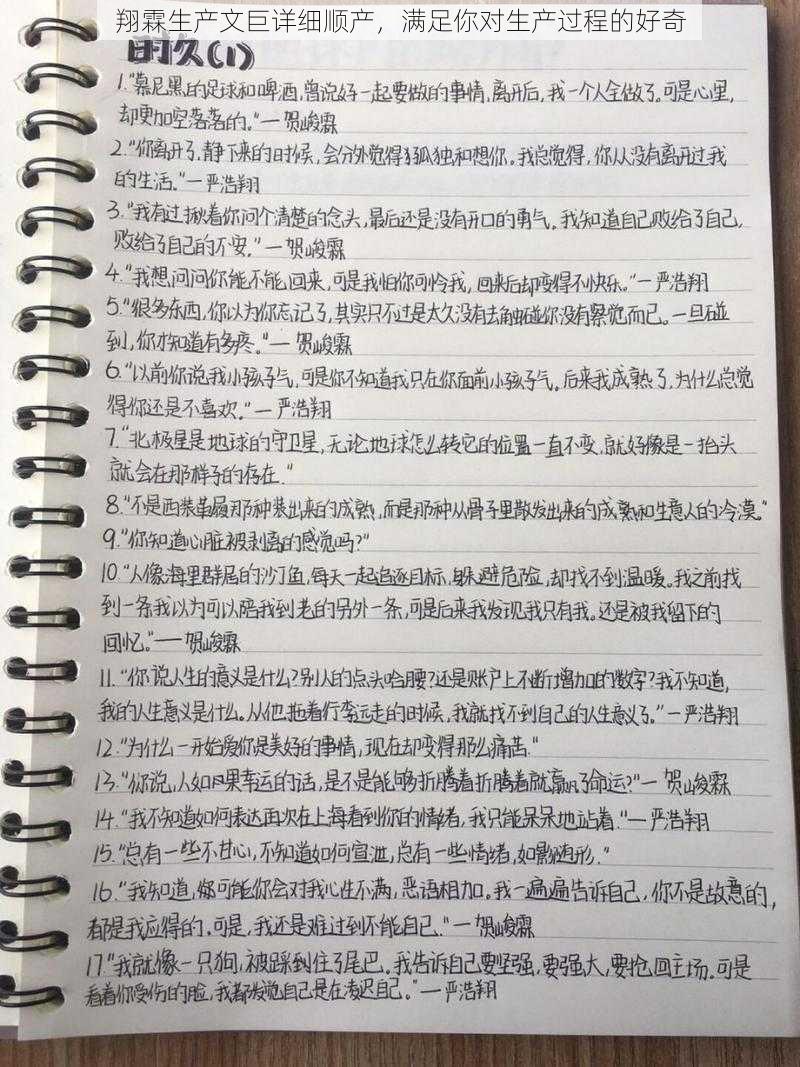 翔霖生产文巨详细顺产，满足你对生产过程的好奇
时久(1)
1."慕尼黑的足球和啤酒,曾说好一起要做的事情,离开后,我一个人全做了。可是心里,
却更加空落落的。"—贺峻霖
2."你离开了,静下来的时候,会分外觉得孤独和想你。我总觉得,你从没有离开过我
的生活。"—严浩翔
3."我有过揪着你问个清楚的念头,最后还是没有开口的勇气。我知道自己败给了自己,
败给了自己的不安。"—贺峻霖
4."我想问问你能不能回来,可是我怕你可怜我,回来后却变得不快乐。"—严浩翔
5."很多东西,你以为你忘记了,其实只不过是太久没有去触碰你没有察觉而已。一旦碰
到,你才知道有多疼。"—贺峻霖
6."以前你说我小孩子气,可是你不知道我只在你面前小孩子气。后来我成熟了,为什么总觉
得你还是不喜欢。"—严浩翔
7."北极星是地球的守卫星,无论地球怎么转它的位置一直不变,就好像是一抬头
就会在那样子的存在."
8."不是西装革履那种装出来的成熟,而是那种从骨子里散发出来的成熟和生意人的冷漠。"
9."你知道心脏被剥离的感觉吗?"
10."人像海里群居的沙丁鱼,每天一起追逐目标,躲避危险,却找不到温暖。我之前找
到一条我以为可以陪我到老的另外一条,可是后来我发现我只有我。还是被我留下的
回忆。"—贺峻霖
11."你说人生的意义是什么?别人的点头哈腰?还是账户上不断增加的数字?我不知道,
我的人生意义是什么。从他拖着行李远走的时候,我就找不到自己的人生意义了。"—严浩翔
12."为什么一开始爱你是美好的事情,现在却变得那么痛苦."
13."你说,人如果幸运的话,是不是能够折腾着折腾着就赢了命运?"—贺峻霖
14."我不知道如何表达再次在上海看到你的情绪,我只能呆呆地站着."—严浩翔
15."总有一些不甘心,不知道如何宣泄,总有一些情绪,如影随形."
16."我知道,你可能你会对我心生不满,恶语相加。我一遍遍告诉自己,你不是故意的,
都是我应得的。可是,我还是难过到不能自已."—贺峻霖
17."我就像一只狗,被踩到住了尾巴。我告诉自己要坚强,要强大,要抢回主场。可是
看着你受伤的脸,我都发觉自己是在凌迟自己。"—严浩翔